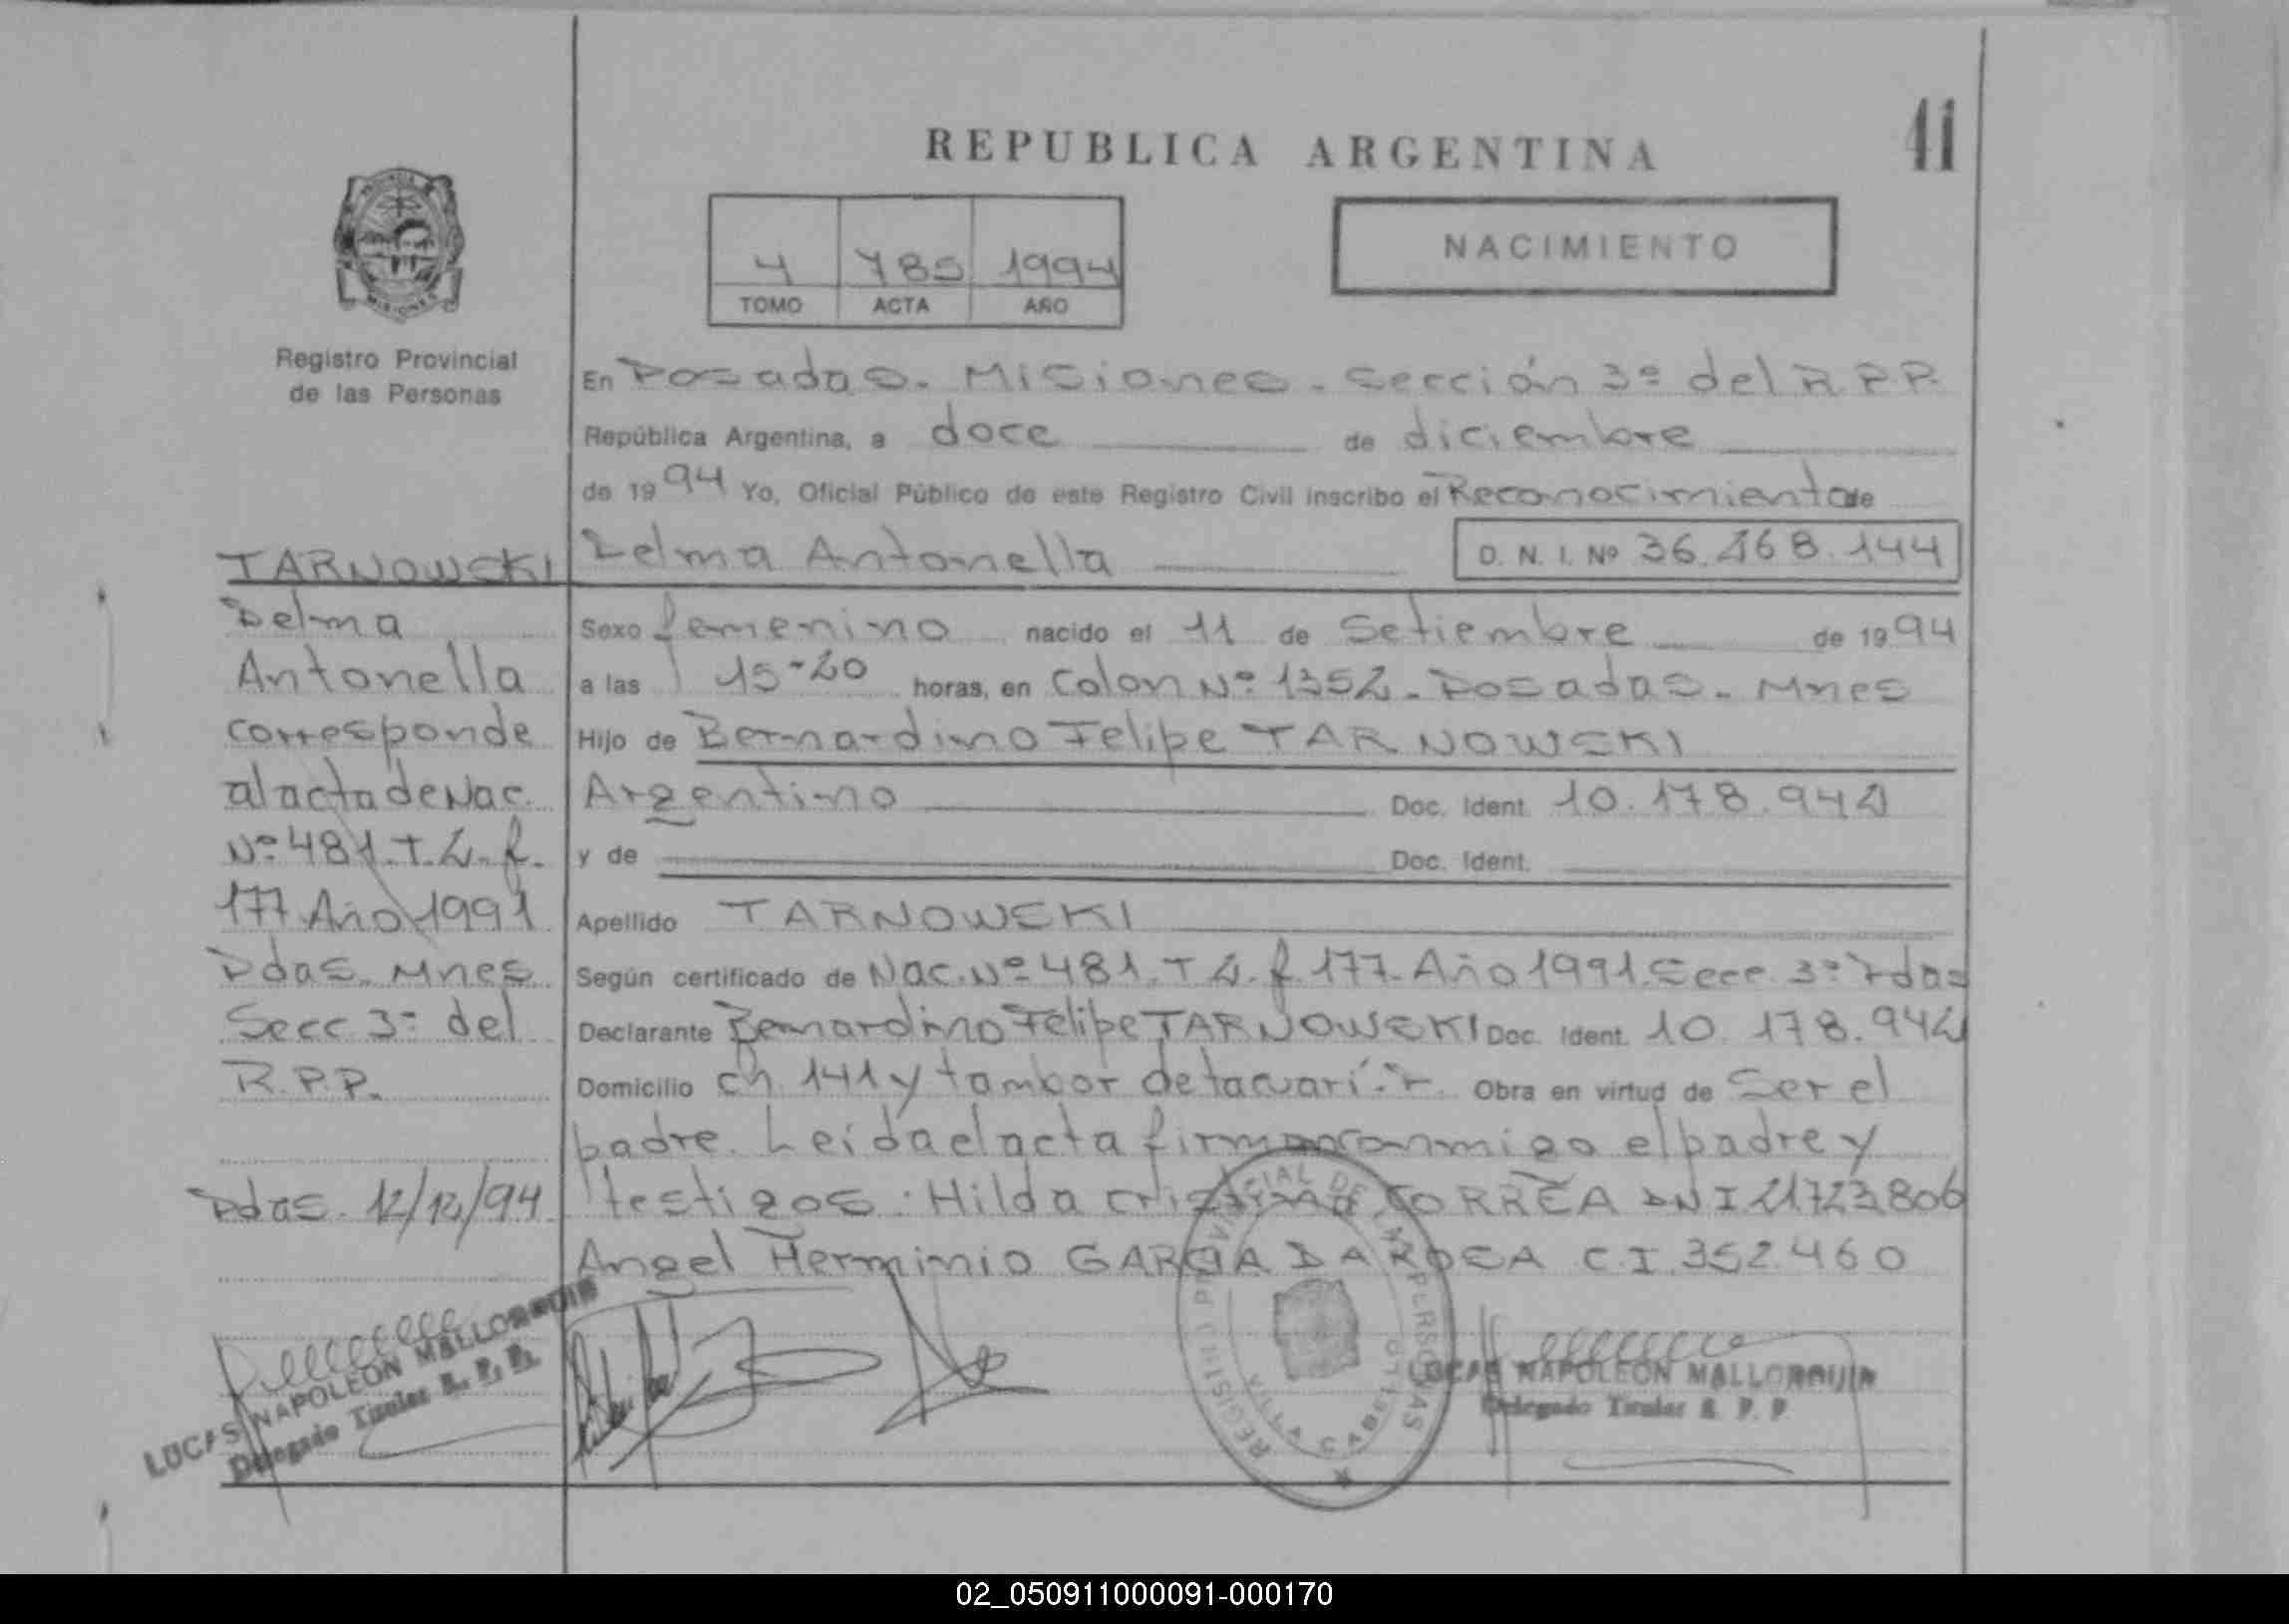 41
REPUBLICA ARGENTINA
4 785 1994
TOMO ACTA AÑO
NACIMIENTO
Registro Provincial
de las Personas
En Posadas. Misiones. Sección 3º del R.P.P.
República Argentina, a doce de diciembre
de 1994 Yo, Oficial Público de este Registro Civil inscribo el Reconocimiento de
Delma Antonella D. N. I. Nº 36.468.144
Sexo femenino nacido el 11 de Setiembre de 1994
a las 15-20 horas, en Colon Nº 1352. Posadas. Mnes
Hijo de Bernardino Felipe TARNOWSKI
Argentino Doc. Ident. 10.178.942
y de Doc. Ident.
Apellido TARNOWSKI
Según certificado de Nac. Nº 481. T 2. f 177. Año 1991. Secc. 3º Pdas
Declarante Bernardino Felipe TARNOWSKI Doc. Ident. 10.178.942
Domicilio ch 141 y tambor de tacuarí. Obra en virtud de Ser el
padre. Leida el acta firman conmigo el padre y
testigos: Hilda Cristina CORREA DNI 21723806
Angel Herminio GARCIA DA ROSA C.I. 352.460
TARNOWSKI
Delma
Antonella
corresponde
al acta de Nac.
Nº 481. T. 2. f.
177. Año 1991
Pdas. Mnes
Secc 3º del
R.P.P.
Pdas. 12/12/94
LUCAS NAPOLEON MALLORQUIN
Delegado Titular R. P. P.
REGISTRO PROVINCIAL DE LAS PERSONAS
VILLA CABELLO
LUCAS NAPOLEON MALLORQUIN
Delegado Titular R. P. P
02_050911000091-000170